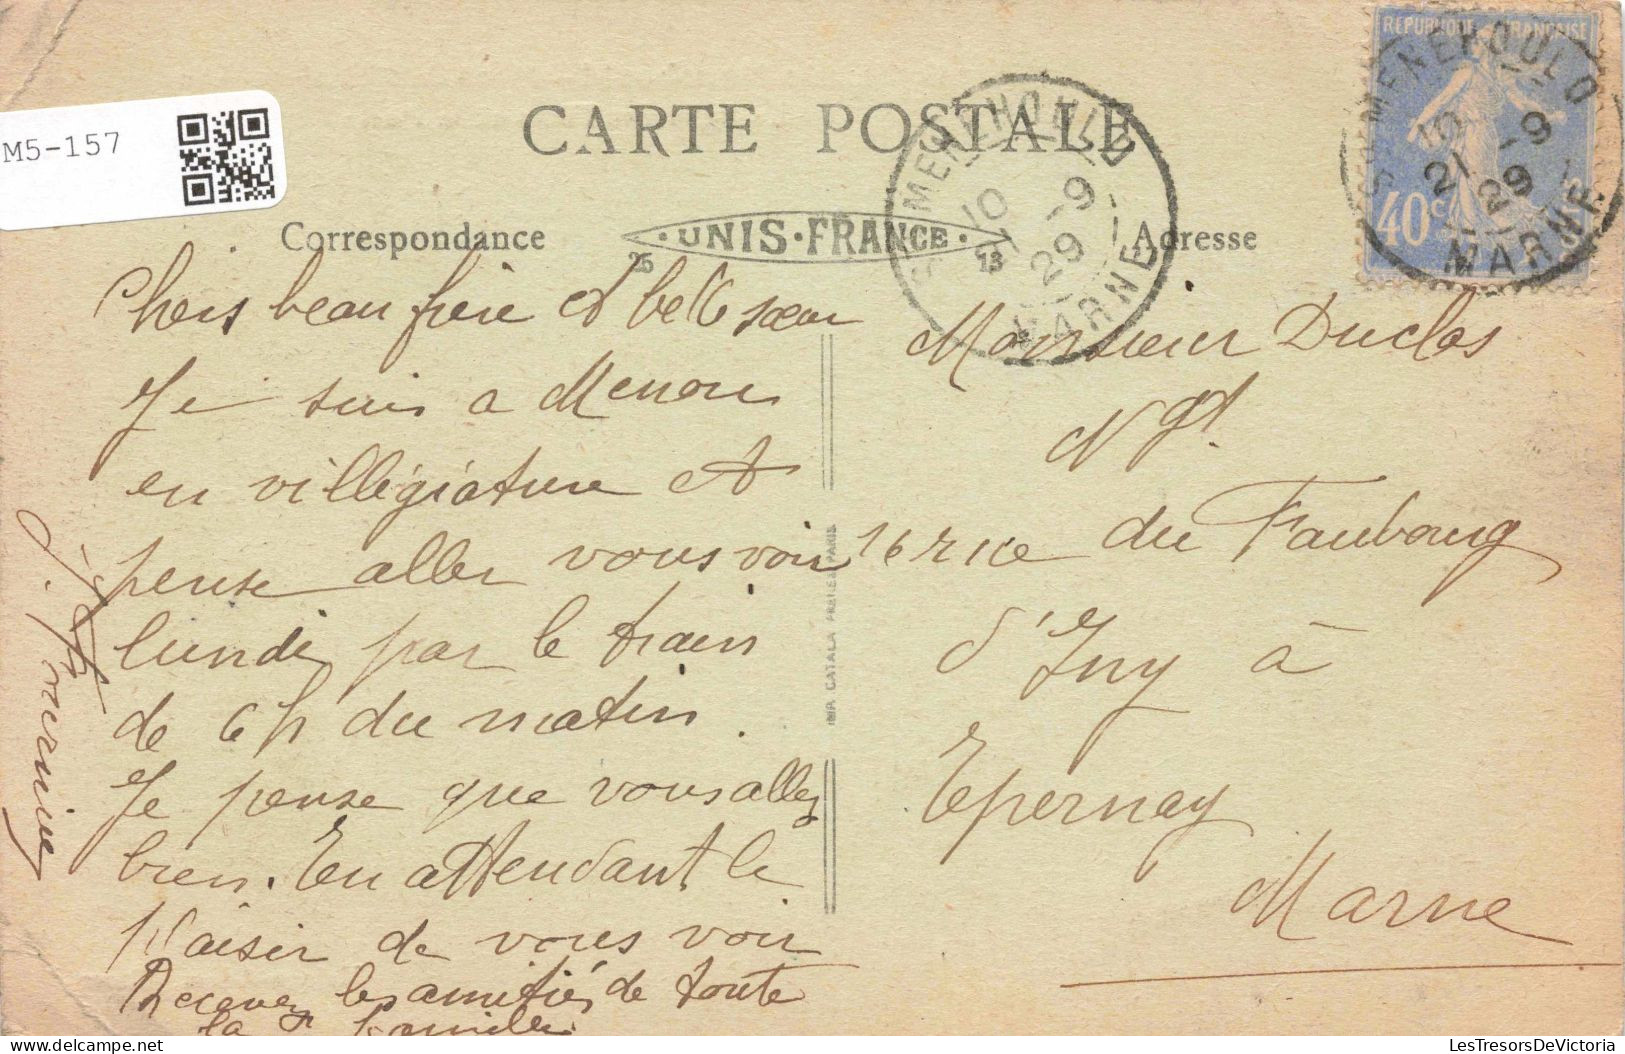 M5-157
CARTE POSTALE
Correspondance
UNIS-FRANCE
25
13
Adresse
REPUBLIQUE FRANÇAISE
40c
POSTES
STE MENEHOULD
10
21 -9
29
MARNE
STE MENEHOULD
10
21 -9
29
MARNE
Chers beau frère et belle sœur
Je suis a Menou
en villégiature et
pense aller vous voir
lundi par le train
de 6h du matin.
Je pense que vous allez
bien. En attendant le
plaisir de vous voir
Recevez les amitiés de toute
la famille
IMP. CATALA FRERES PARIS
Monsieur Duclos
Ngt
16 rue du Faubourg
d'Igny à
Epernay
Marne
LesTresorsDeVictoria
delcampe.net